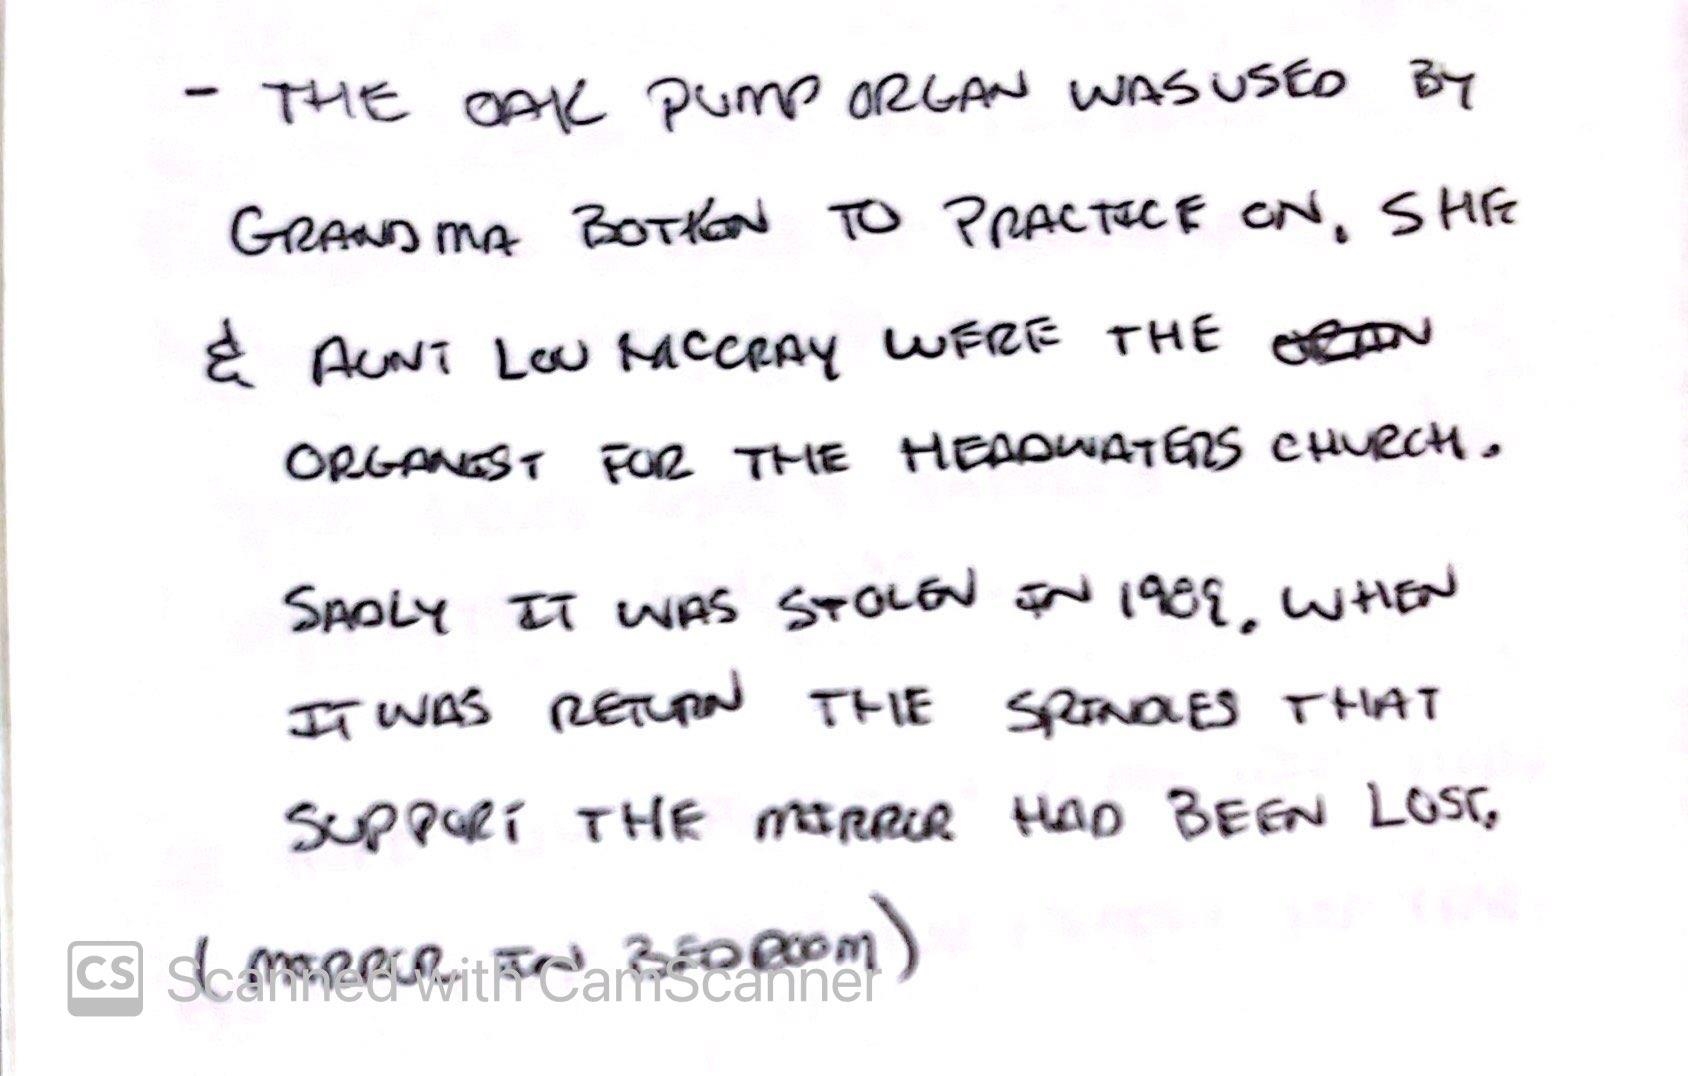 - THE OAK PUMP ORGAN WAS USED BY
GRANDMA BOTKEN TO PRACTICE ON. SHE
& AUNT LOU MCCRAY WERE THE
ORGANIST FOR THE HEADWATERS CHURCH.
SADLY IT WAS STOLEN IN 1989. WHEN
IT WAS RETURN THE SPINDLES THAT
SUPPORT THE MIRROR HAD BEEN LOST.
(MIRROR IN BEDROOM)
CS Scanned with CamScanner